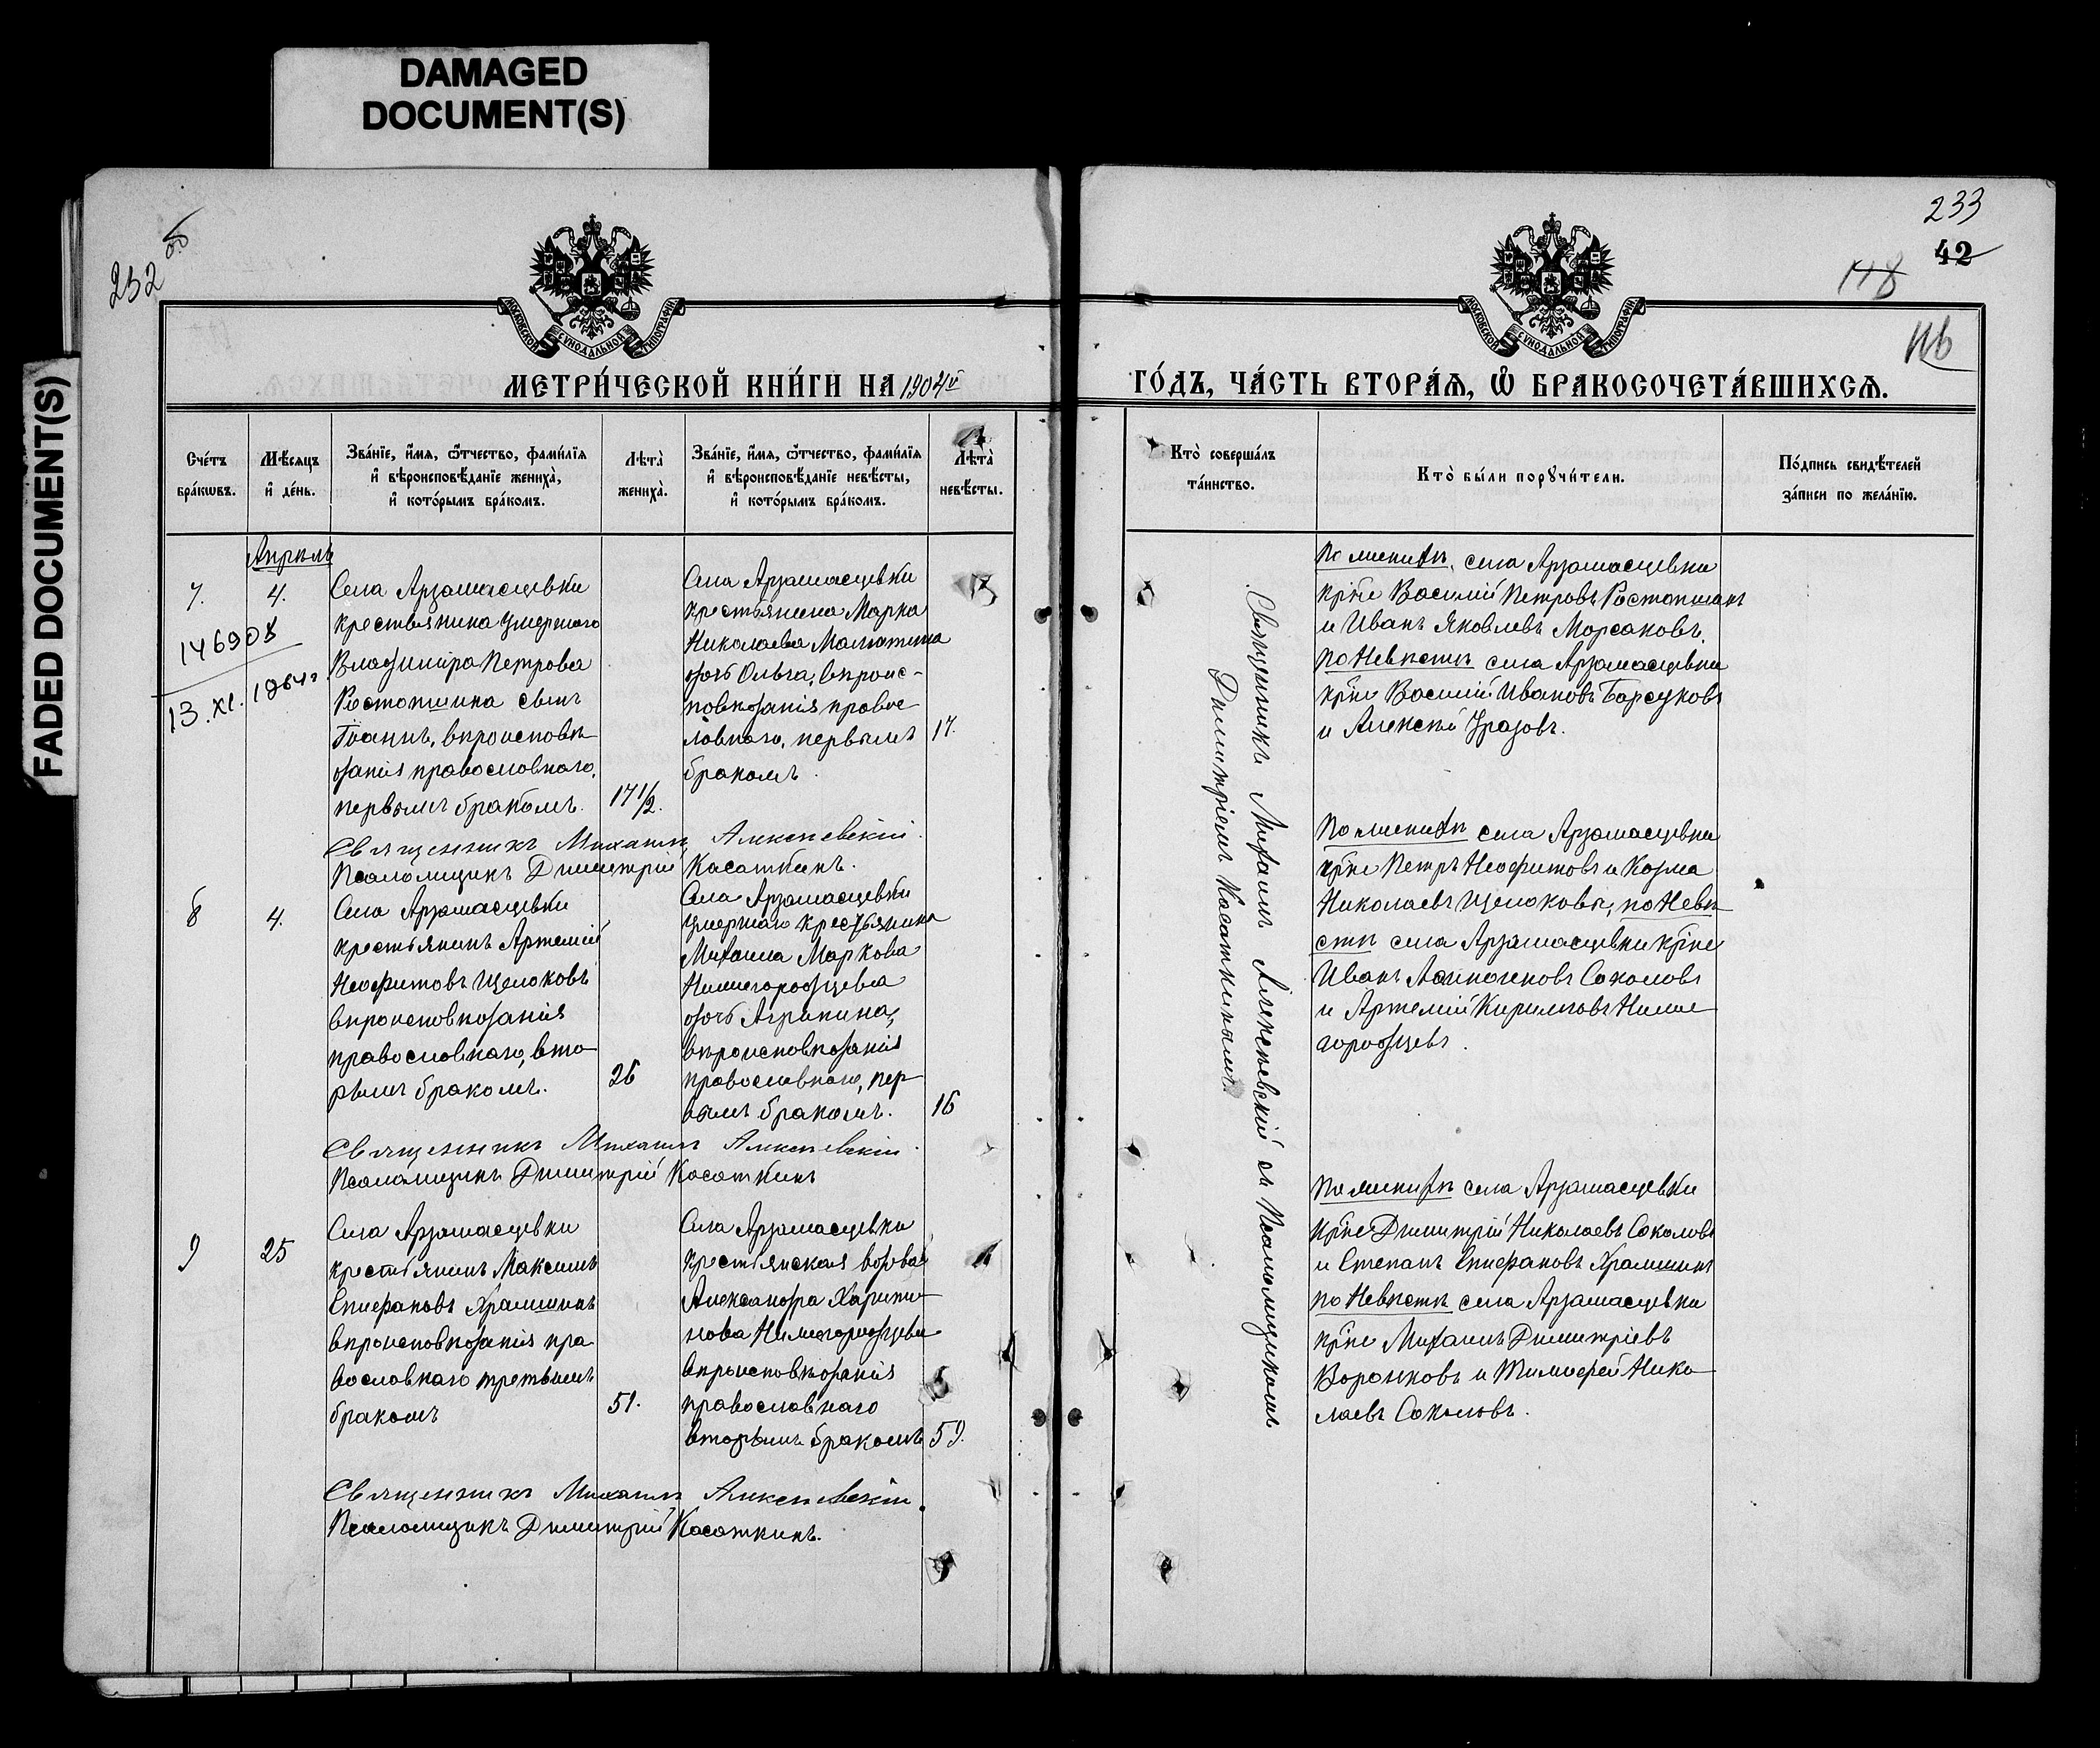 DAMAGED
DOCUMENT(S)
FADED DOCUMENT(S)
232 об
МОСКОВСКОЙ СѴНОДАЛЬНОЙ ТИПОГРАФІИ
МЕТРИ́ЧЕСКОЙ КНИ́ГИ НА 1904й
Сче́тъ бра́кѡвъ.
Мѣ́сяцъ и҆ де́нь.
Зва́нїе, и҆́мѧ, ѻ҆́тчество, фами́лїѧ и҆ вѣроисповѣ́данїе жениха̀, и҆ кото́рымъ бра́комъ.
Лѣта̀ жениха̀.
Зва́нїе, и҆́мѧ, ѻ҆́тчество, фами́лїѧ и҆ вѣроисповѣ́данїе невѣ́сты, и҆ кото́рымъ бра́комъ.
Лѣта̀ невѣ́сты.
Апрѣль
7.
4.
146908
13.XI.1964г
Села Арзамасцевки
крестьянина умершаго
Владиміра Петрова
Ростопшина сынъ
Іоаннъ, вѣроисповѣ-
данія православнаго,
первымъ бракомъ.
17 1/2.
Села Арзамасцевки
крестьянина Марка
Николаева
дочь Ольга, вѣроис-
повѣданія правос-
лавнаго, первымъ
бракомъ.
17.
Священникъ Михаилъ Алексѣевскій.
Псаломщикъ Димитрій Касаткинъ.
8
4.
Села Арзамасцевки
крестьянинъ Артемій
Неофитовъ Щелоковъ
вѣроисповѣданія
православнаго, вто-
рымъ бракомъ.
26
Села Арзамасцевки
умершаго крестьянина
Михаила Маркова
Нижегородцева
дочь Агрипина,
вѣроисповѣданія
православнаго, пер-
вымъ бракомъ.
16
Священникъ Михаилъ Алексѣевскій.
Псаломщикъ Димитрій Касаткинъ
9
25
Села Арзамасцевки
крестьянинъ Максимъ
Епифановъ Храмшинъ
вѣроисповѣданія пра
вославнаго третьимъ
бракомъ
51.
Села Арзамасцевки
крестьянская вдова
Александра Харито-
нова Нижегородцева
вѣроисповѣданія
православнаго
вторымъ бракомъ
59.
Священникъ Михаилъ Алексѣевскій.
Псаломщикъ Димитрій Касаткинъ.
233
42
118
116
МОСКОВСКОЙ СѴНОДАЛЬНОЙ ТИПОГРАФІИ
ГО́ДЪ, ЧА́СТЬ ВТОРА́Ѧ, Ѽ БРАКОСОЧЕТА́ВШИХСѦ.
Кто̀ соверша́лъ та́инство.
Кто̀ бы́ли порꙋчи́тели.
По́дпись свидѣ́телей за́писи по жела́нїю.
Священникъ Михаилъ Алексѣевскій съ Псаломщикомъ
Димитріемъ Касаткинымъ.
По женихѣ, села Арзамасцевки
кр̃не Василій Петровъ Ростопшинъ
и Иванъ Яковлевъ Морсаковъ,
по Невѣстѣ села Арзамасцевки
кр̃не Василій Ивановъ Барсуковъ
и Алексѣй Уразовъ.
По женихѣ села Арзамасцевки
кр̃не Петръ Неофитовъ и Козма
Николаевъ Щелоковы, по Невѣ-
стѣ села Арзамасцевки кр̃не
Иванъ Соколовъ
и Артемій Кириловъ Ниже
городцевъ.
По женихѣ села Арзамасцевки
кр̃не Димитрій Николаевъ Соколовъ
и Степанъ Епифановъ Храмшинъ
по Невѣстѣ села Арзамасцевки
кр̃не Михаилъ Димитріевъ
Воронковъ и Тимофей Нико-
лаевъ Соколовъ.